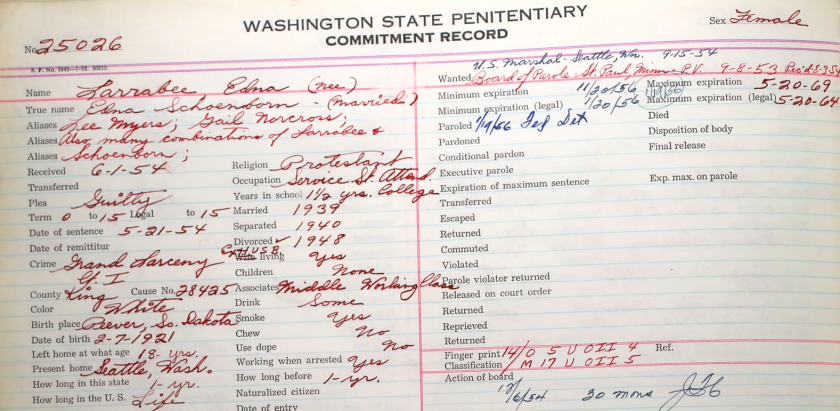 WASHINGTON STATE PENITENTIARY
COMMITMENT RECORD
Sex Female
No. 25026
S. F. No. 1641—1-52. 30213.
Name Larrabee, Edna (nee)
True name Edna Schoenborn - (Married)
Aliases Lee Myers; Gail Norcross;
Aliases Also many combinations of Larrabee &
Aliases Schoenborn;
Received 6-1-54
Transferred
Plea Guilty
Term 0 to 15 Legal to 15
Date of sentence 5-21-54
Date of remittitur
Crime Grand Larceny
Ct. I
County King Cause No. 28425
Color White
Birth place Peever, So. Dakota
Date of birth 2-7-1921
Left home at what age 18- yrs.
Present home Seattle, Wash.
How long in this state 1-yr.
How long in the U. S. Life
Religion Protestant
Occupation Service St. Attend.
Years in school 1½ yrs. College
Married 1939
Separated 1940
Divorced ✓ 1948
Ex HUSB
Wife living yes
Children None
Associates Middle Working Class
Drink Some
Smoke yes
Chew No
Use dope No
Working when arrested yes
How long before 1-yr.
Naturalized citizen
Date of entry
U.S. Marshal-Seattle, Wn. 9-15-54
Wanted Board of Parole - St. Paul, Minn - P.V. 9-8-53 Rec'd 8-3-54
Minimum expiration 11/20/56 Maximum expiration 5-20-69
Minimum expiration (legal) 1/20/56 Maximum expiration (legal) 5-20-64
Paroled 1/9/56 Fed Det Died
Pardoned Disposition of body
Conditional pardon Final release
Executive parole
Expiration of maximum sentence Exp. max. on parole
Transferred
Escaped
Returned
Commuted
Violated
Parole violator returned
Released on court order
Returned
Reprieved
Returned
Finger print 14/ O 5 U OII 4 Ref.
Classification / M 17 U OII 5
Action of board
12/6/54 30 mons